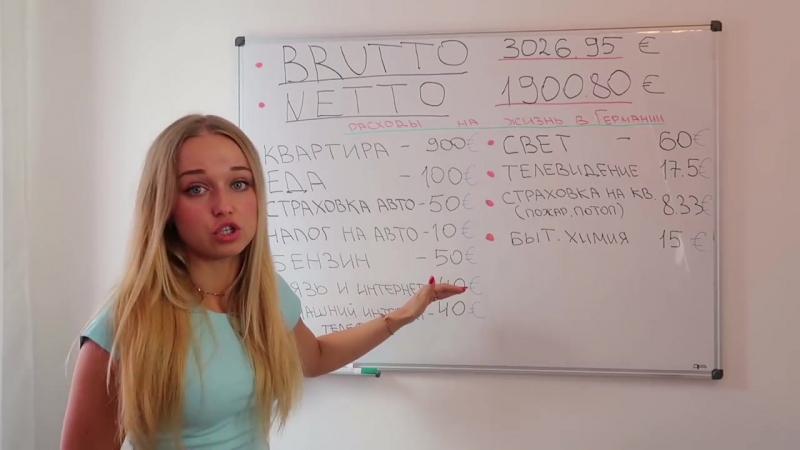 BRUTTO 3026.95 €
NETTO 1900.80 €
РАСХОДЫ НА ЖИЗНЬ В ГЕРМАНИИ
КВАРТИРА - 900€
ЕДА - 100€
СТРАХОВКА АВТО - 50€
НАЛОГ НА АВТО - 10€
БЕНЗИН - 50€
И ИНТЕРНЕТ 40€
- 40€
СВЕТ - 60€
ТЕЛЕВИДЕНИЕ 17.5€
СТРАХОВКА НА КВ. 8.33€
(ПОЖАР, ПОТОП)
БЫТ. ХИМИЯ 15€